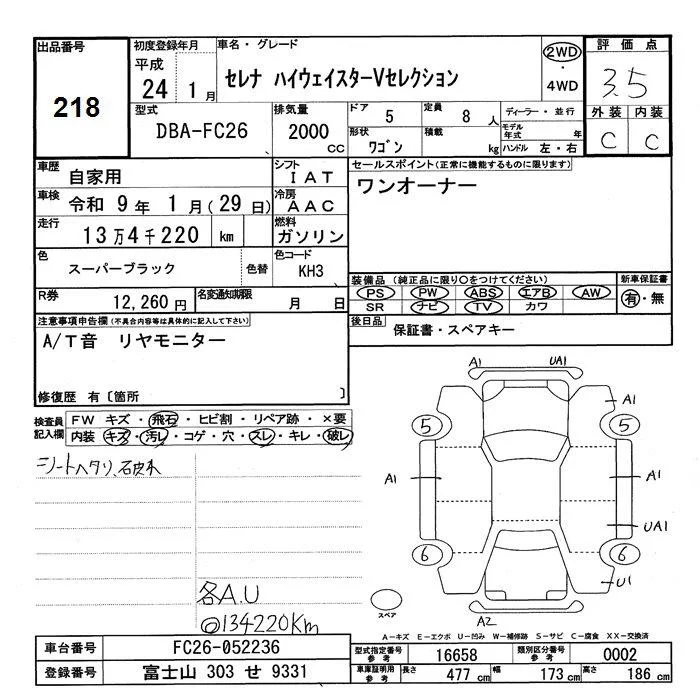 出品番号
218
初度登録年月
平成
24 1月
車名・グレード
セレナ ハイウェイスターVセレクション
2WD
・
4WD
評価点
3.5
外装 内装
C C
型式
DBA-FC26
排気量
2000
cc
ドア 5
定員 8人
形状 ワゴン
積載 kg
ディーラー・並行
モデル年式 年
ハンドル 左・右
車歴 自家用
シフト IAT
セールスポイント(正常に機能するものに限ります)
ワンオーナー
車検 令和 9年 1月(29日)
冷房 AAC
走行 13万4千220 km
燃料 ガソリン
色 スーパーブラック
色替
色コード KH3
R券 12,260円
名変通知期限 月 日
装備品(純正品に限り○をつけてください)
PS PW ABS エアB AW
SR ナビ TV カワ
新車保証書
有・無
後日品 保証書・スペアキー
注意事項申告欄(不具合内容等は具体的に記入して下さい)
A/T音 リヤモニター
修復歴 有〔箇所 〕
検査員記入欄
FW キズ・飛石・ヒビ割・リペア跡・×要
内装 キズ・汚レ・コゲ・穴・スレ・キレ・破レ
シートヘタリ、
各A.U
◎134220Km
A1 UA1
A1
5 5
A1 A1
UA1
6 6
U1
スペア
A2
A-キズ E-エクボ U-凹み W-補修跡 S-サビ C-腐食 XX-交換済
車台番号 FC26-052236
登録番号 富士山 303 せ 9331
型式指定番号参考 16658
類別区分番号参考 0002
車庫証明用参考 長さ 477cm 幅 173cm 高さ 186cm